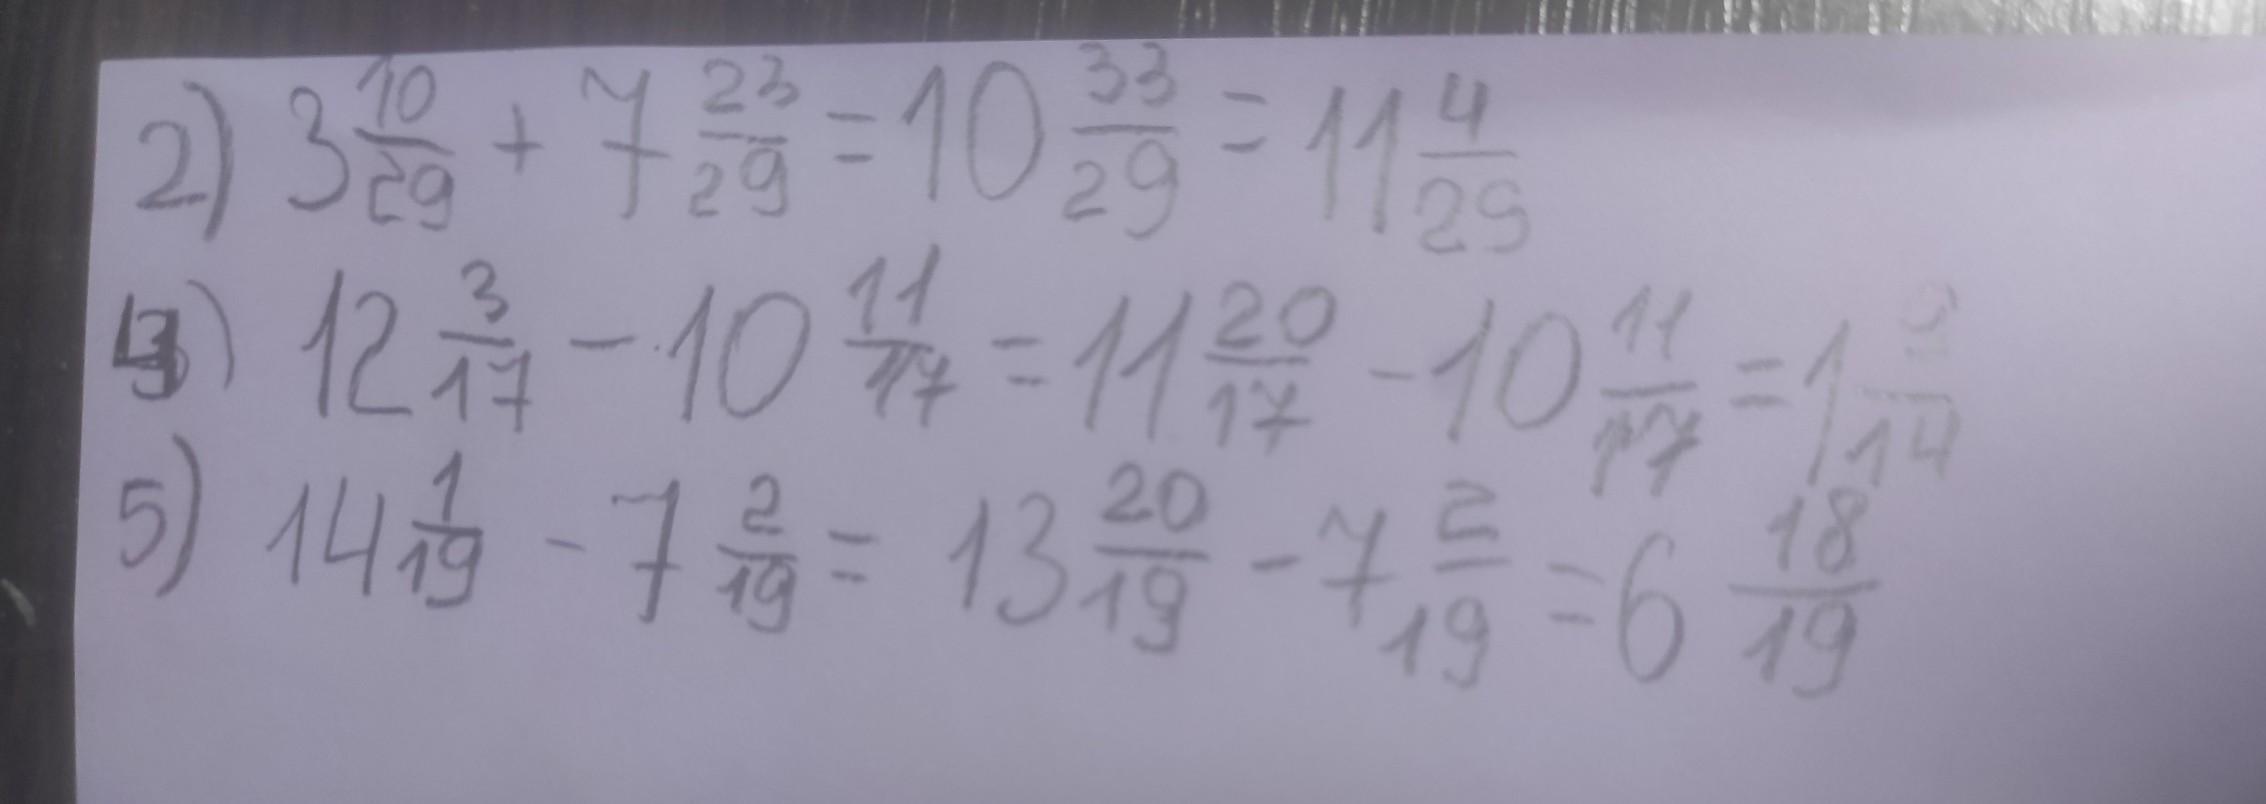 2) 3 10/29 + 7 23/29 = 10 33/29 = 11 4/29
4) 12 3/17 - 10 11/17 = 11 20/17 - 10 11/17 = 1 9/14
5) 14 1/19 - 7 2/19 = 13 20/19 - 7 2/19 = 6 18/19